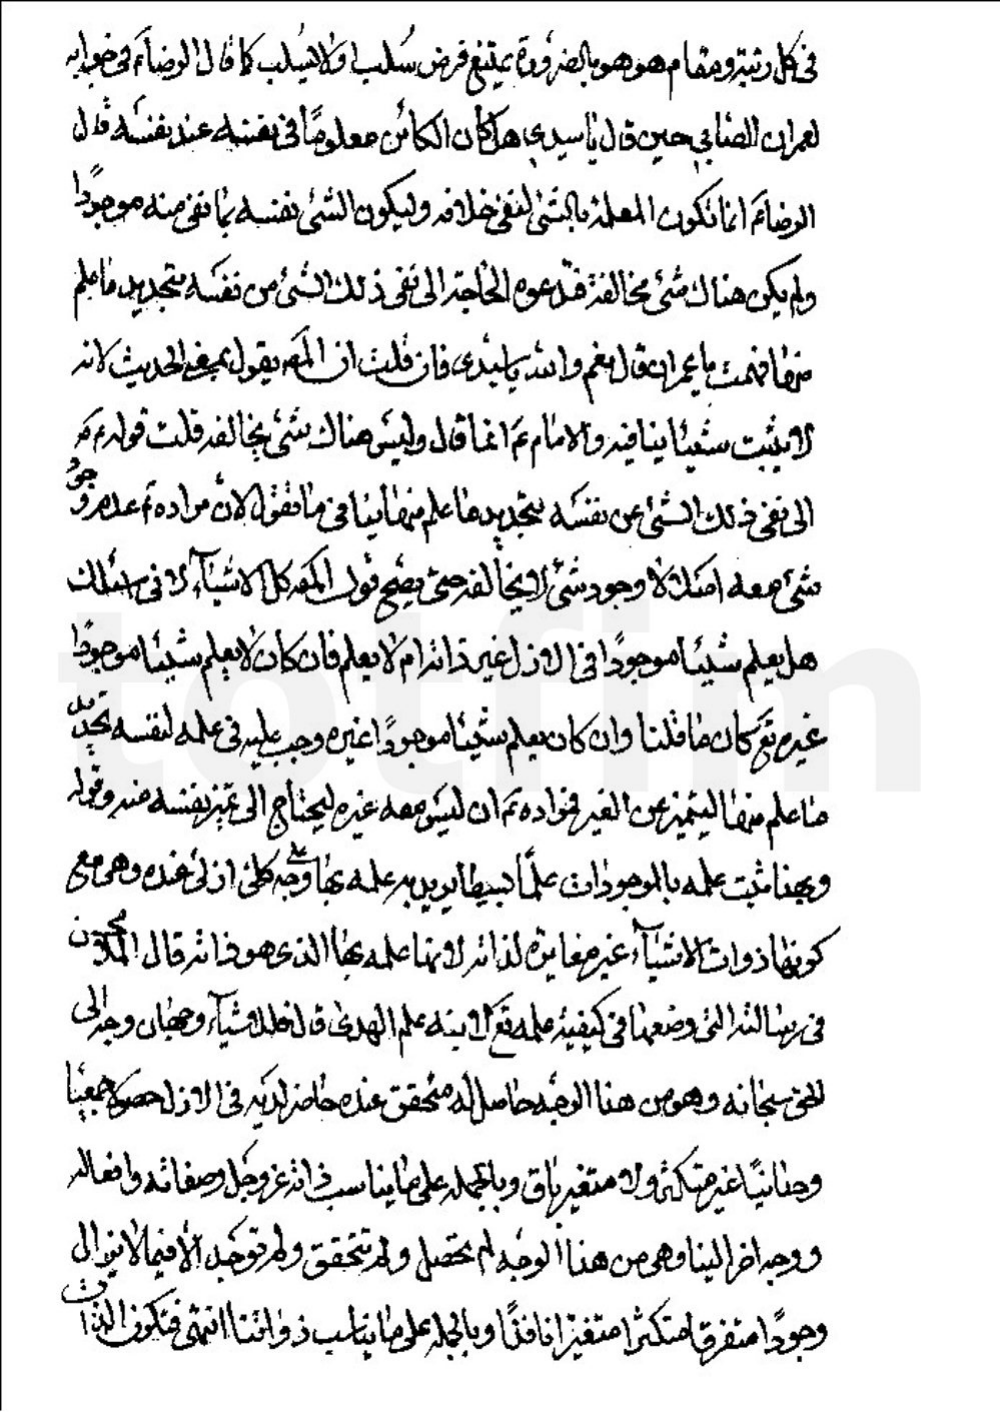 فى كل رتبة ومقام هو هو بالضرورة يمتنع فرض سلب اولا سلب كما قال الرضاء فى جوابه
لعمران الصابى حين قال يا سيدى هل كان الكائن معلومًا فى نفسه عند نفسه قال
الرضاءَم انما تكون المعلمة بالشئ لنفى خلافه وليكون الشئ نفسه بما نفى منه موجودًا
ولم يكن هناك شئ يخالفه فتدعوه الحاجة الى نفى ذلك الشئ من نفسه بتحديد ما علم
منها افهمت يا عمران قال نعم والله يا سيدى فان قلت ان المصَ يقول بمعنى الحديث لانه
لا يثبت شيئا ينافيه والامام عَم انما قال وليس هناك شئ يخالفه قلت قوله عَم
الى نفى ذلك الشئ عن نفسه بتحديد ما علم منها ينافى ما نقول لان مراده عَ عدم وجود
شئ معه اصلا لا وجود شئ لا يخالفه حتى يصح قول المصَ كل الاشياء لا فى اسئلك
هل يعلم شيئا موجودًا فى الازل غير ذاته ام لا يعلم فان كان لا يعلم شيئا موجودًا
غيره تع كان ما قلنا وان كان يعلم شيئا موجودًا غيره وجب عليه فى علمه لنفسه تحديد
ما علم منها ليتميز عن الغير فمراده عَم ان ليس معه غيره ليحتاج الى تميز نفسه منه وقوله
وبهذا مثبت علمه بالموجودات علمًا بسيطا يريد به علمه بها على وجه كلى ازلى عنده وهى مع
كونها ذوات الاشياء غير مغايرة لذاته لانها علمه بها الذى هو ذاته قال الملا محسن
فى رسالته التى وضعها فى كيفية علمه تع لابنه علم الهدى قال فللاشياء وجهان وجه الى
الحق سبحانه وهو من هذا الوجه حاصل له متحقق عنده حاضر لديه فى الازل حصولا جمعيًا
وحدانيًا غير متكثر ولا متغير باق وبالجملة على ما يناسب ذاته عز وجل وصفاته وافعاله
ووجه اخر الينا وهى من هذا الوجه لم يحصل ولم تتحقق ولم توجد الا فيما لا يزال
وجودًا متفرقا متكثرا متغيرا نافدًا وبالجملة على ما يناسب ذواتنا انتهى فتكون الذات